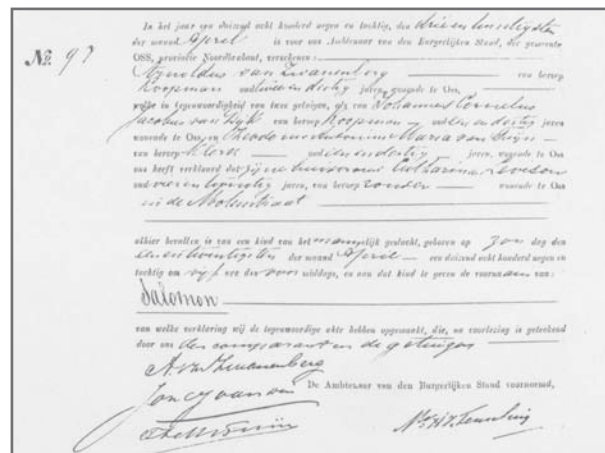 In het jaar een duizend acht honderd negen en tachtig, den drie en twintigsten
der maand April is voor ons Ambtenaar van den Burgerlijken Stand, der gemeente
OSS, provincie Noordbrabant, verschenen:
No. 97
van Zwanenberg van beroep
Koopman oud twee en dertig jaren, wonende te Oss,
welke in tegenwoordigheid van twee getuigen, als van Johannes Cornelus
Jacobus van Dijk van beroep Koopman oud en dertig jaren
wonende te Oss, en Theodorus Antonius Maria van
van beroep Klerk oud een en dertig jaren, wonende te Oss
ons heeft verklaard dat zijne huisvrouw Catharina
oud vier en twintig jaren, van beroep zonder wonende te Oss
in de Molenstraat
alhier bevallen is van een kind van het mannelijk geslacht, geboren op Zon dag den
een en twintigsten der maand April een duizend acht honderd negen en
tachtig om vijf ure des voor middags, en aan dat kind te geven de voornaam van:
Salomon
van welke verklaring wij de tegenwoordige akte hebben opgemaakt, die, na voorlezing is geteekend
door ons den comparant en de getuigen
A. van Zwanenberg
De Ambtenaar van den Burgerlijken Stand voornoemd,